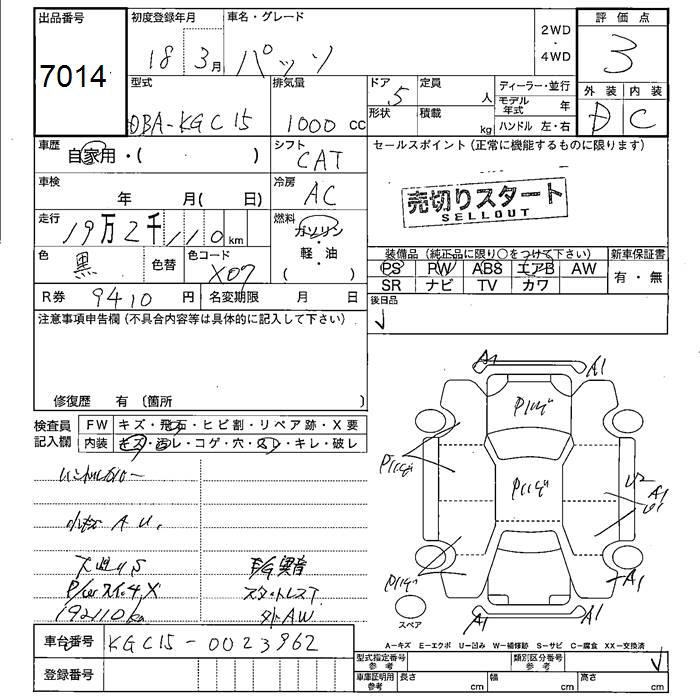 出品番号 初度登録年月 車名・グレード 2WD・4WD 評価点
7014 18 3月 パッソ 3
型式 排気量 ドア 5 定員 人 ディーラー・並行 外装 内装
DBA-KGC15 1000cc 形状 積載 kg モデル年式 年 D C
ハンドル 左・右
車歴 自家用・( ) シフト CAT セールスポイント (正常に機能するものに限ります)
車検 年 月( 日) 冷房 AC
売切りスタート
SELLOUT
走行 19万2千110km 燃料 ガソリン・軽・油
色 黒 色替 色コード X07
装備品 (純正品に限り○をつけて下さい) 新車保証書
PS PW ABS エアB AW 有・無
SR ナビ TV カワ
R券 9410円 名変期限 月 日 後日品
注意事項申告欄 (不具合内容等は具体的に記入して下さい)
修復歴 有 (箇所 )
検査員記入欄 FW キズ・飛石・ヒビ割・リペア跡・X要
内装 キズ・汚レ・コゲ・穴・スレ・キレ・破レ
A1 A1
Pハゲ
Pハゲ Pハゲ
U2 A1
U1
小キズ A U.
E/G異音
Pハゲ A1
スタットレスT
192110km 外AW
スペア A1 A1
車台番号 KGC15-0023962
A-キズ E-エクボ U-凹み W-補修跡 S-サビ C-腐食 XX-交換済
登録番号
型式指定番号 参考 類別区分番号 参考
車庫証明用 参考 長さ cm 幅 cm 高さ cm